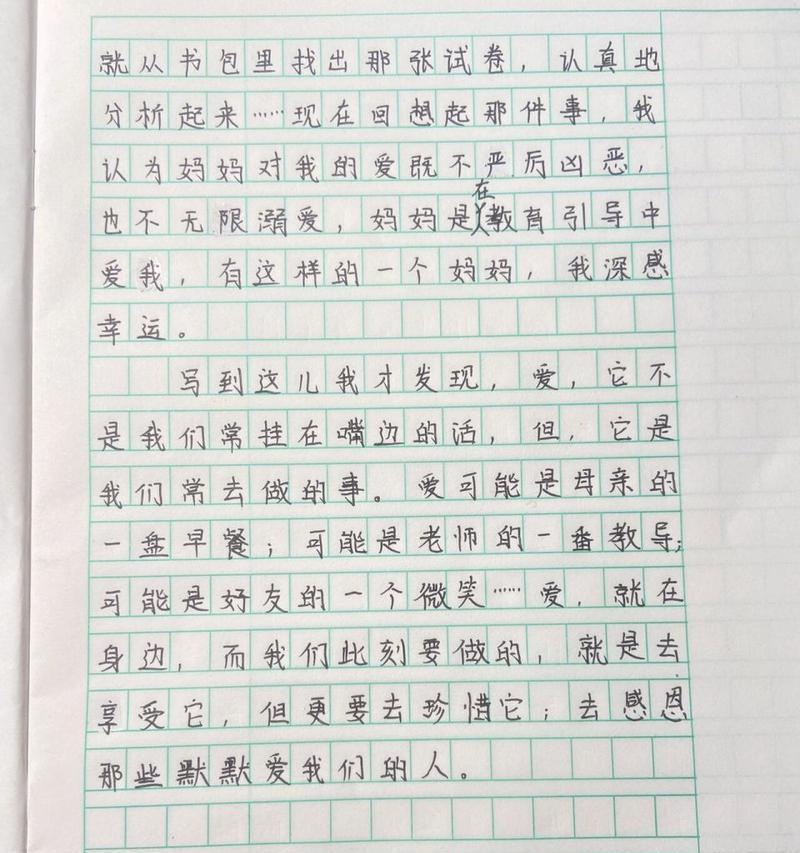 就从书包里找出那张试卷，认真地
分析起来……现在回想起那件事，我
认为妈妈对我的爱既不严厉凶恶，
也不无限溺爱，妈妈是在教育引导中
爱我，有这样的一个妈妈，我深感
幸运。
写到这儿我才发现，爱，它不
是我们常挂在嘴边的话，但，它是
我们常去做的事。爱可能是母亲的
一盘早餐；可能是老师的一番教导；
可能是好友的一个微笑……爱，就在
身边，而我们此刻要做的，就是去
享受它，但更要去珍惜它；去感恩
那些默默爱我们的人。